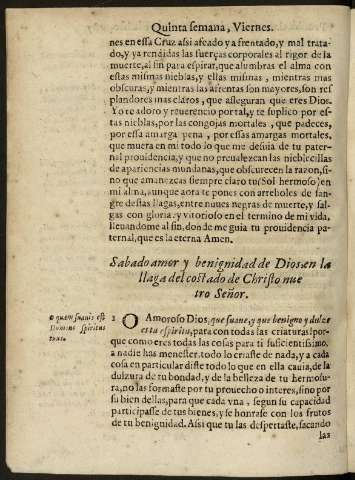 Quinta semana, Viernes.
nes en essa Cruz assi afeado y afrentado, y mal trata-
do, y ya rendidas las fuerças corporales al rigor de la
muerte, al fin para espirar, que alumbras el alma con
estas mismas nieblas, y ellas mismas, mientras mas
obscuras, y mientras las afrentas son mayores, son res
plandores mas claros, que asseguran que eres Dios.
Yo te adoro y reuerencio por tal, y te suplico por es-
tas nieblas, por las congojas mortales, que padeces,
por essa amarga pena, por essas amargas mortales,
que muera en mi todo lo que me desuia de tu pater-
nal prouidencia, y que no preualezcan las nieblecillas
de apariencias mundanas, que obscurecen la razon, si-
no que amanezcas siempre claro tu (Sol hermoso) en
mi alma, aunque aora te pones con arreboles de san-
gre destas llagas, entre nuues negras de muerte, y sal-
gas con gloria, y vitorioso en el termino de mi vida,
lleuandome al fin, donde me guia tu prouidencia pa-
ternal, que es la eterna Amen.
Sabado amor y benignidad de Dios, en la
llaga del costado de Christo nue
stro Señor.
O quam suauis est
Domine spiritus
tuus.
1 O Amoroso Dios, que suaue, y que benigno y dulce
es tu espiritu, para con todas las criaturas! por-
que como eres todas las cosas para ti suficientissimo,
a nadie has menester, todo lo criaste de nada, y a cada
cosa en particular diste todo lo que en ella cauia, de la
dulzura de tu bondad, y de la belleza de tu hermosu-
ra, no las formaste por tu prouecho o interes, sino por
su bien dellas, para que cada vna, segun su capacidad
participasse de tus bienes, y se honrase con los frutos
de tu benignidad. Assi que tu las despertaste, sacando
las